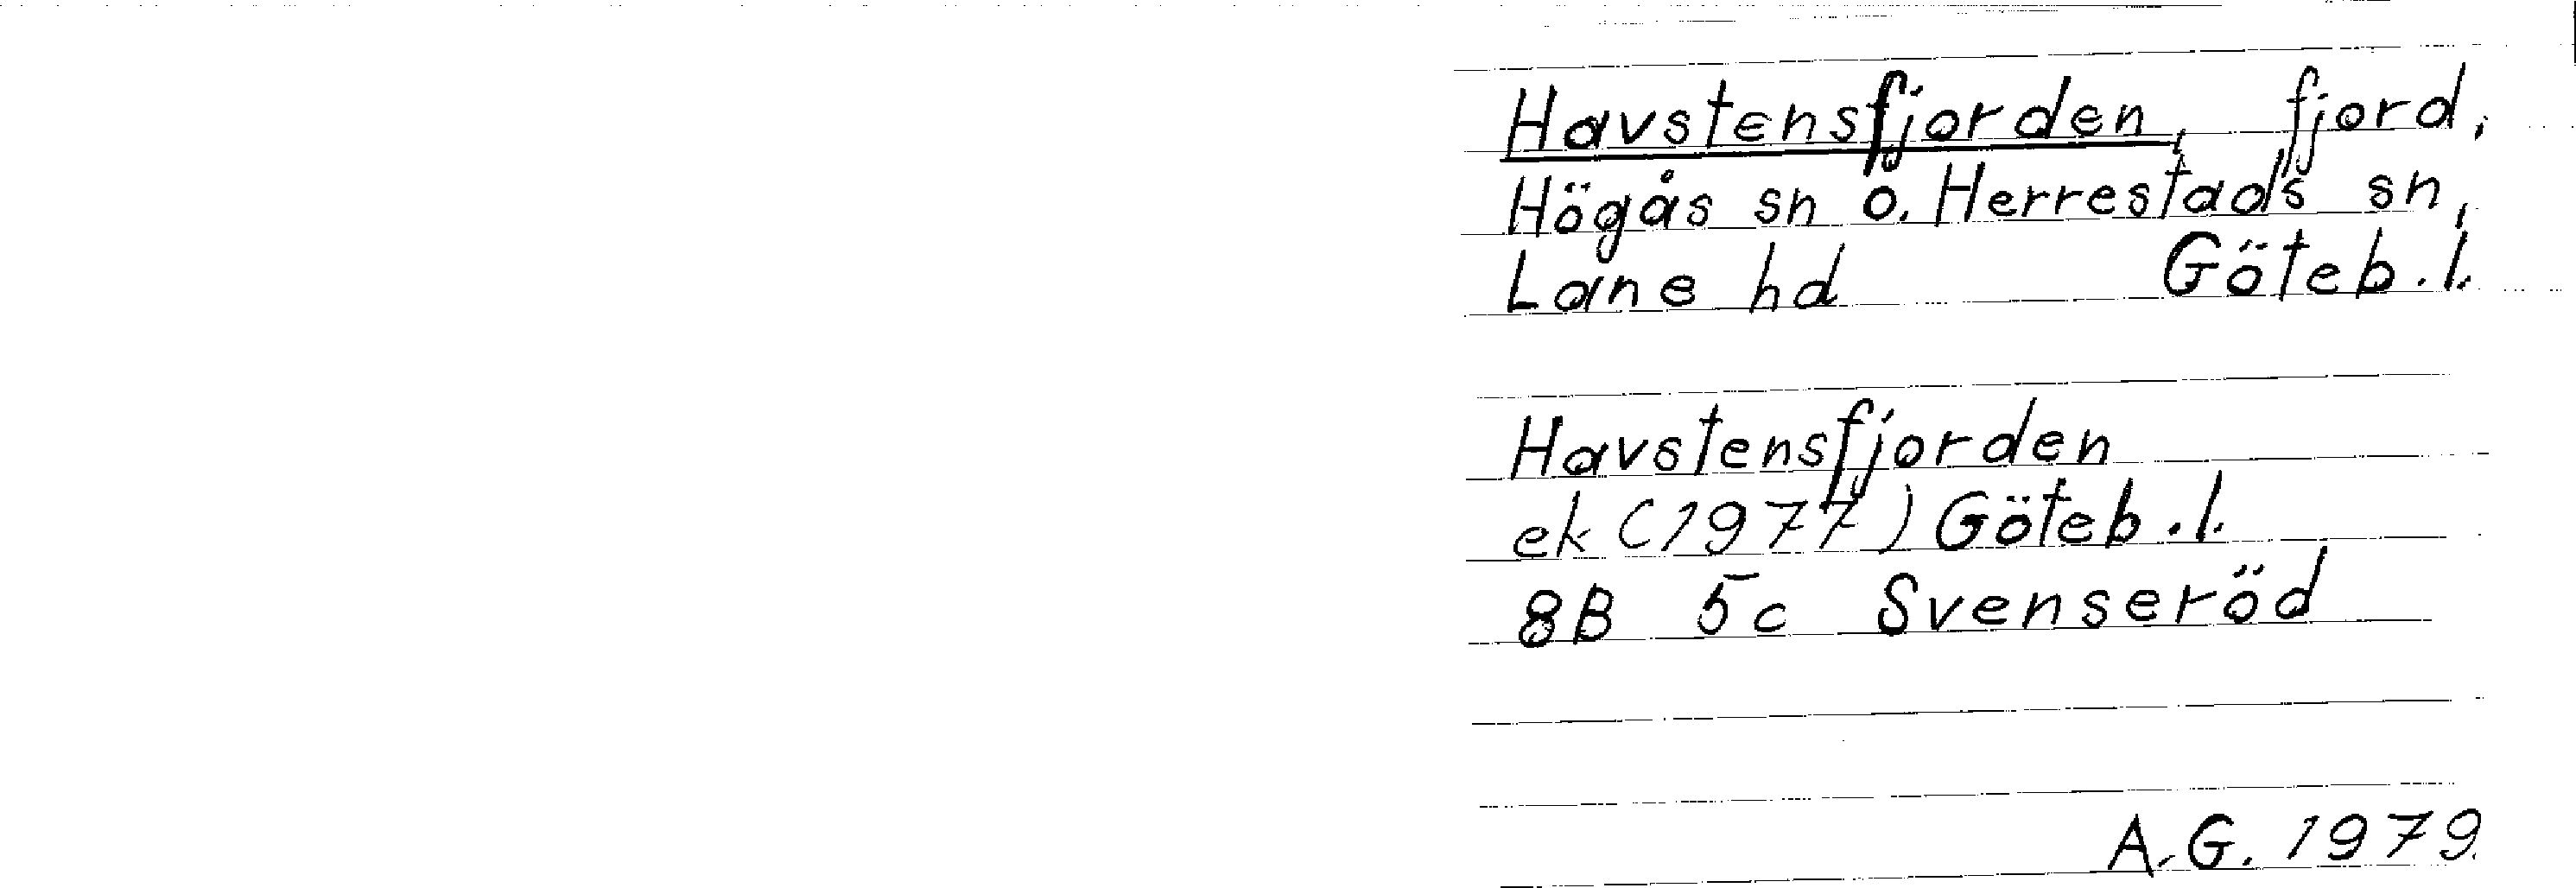 Havstensfjorden, fjord,
Högås sn o. Herrestads sn,
Lane hd Göteb.l.
Havstensfjorden
ek (1977) Göteb.l.
8B 5c Svenseröd
A.G. 1979.